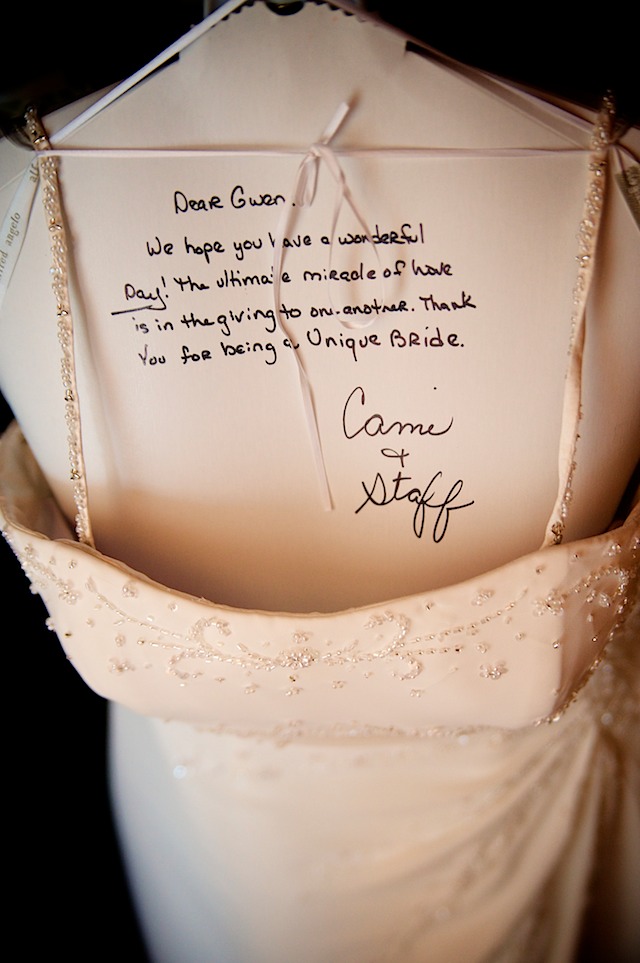 Dear Gwen.
We hope you have a wonderful
Day! The ultimate miracle of love
is in the giving to one another. Thank
You for being a Unique Bride.
Cami
+
Staff
angelo